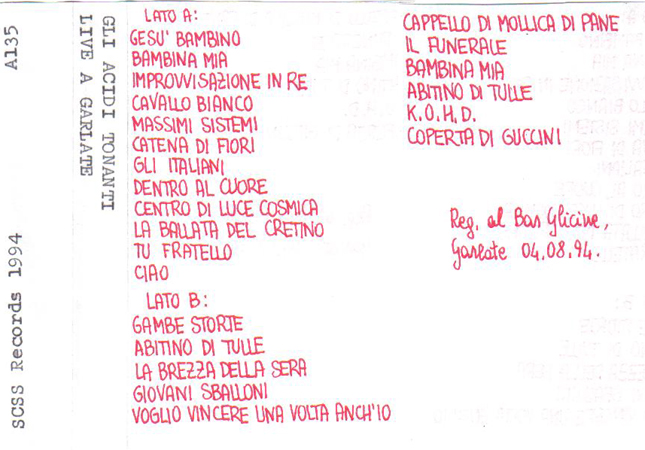 A135
SCSS Records 1994
GLI ACIDI TONANTI
LIVE A GARLATE
LATO A:
GESU' BAMBINO
BAMBINA MIA
IMPROVVISAZIONE IN RE
CAVALLO BIANCO
MASSIMI SISTEMI
CATENA DI FIORI
GLI ITALIANI
DENTRO AL CUORE
CENTRO DI LUCE COSMICA
LA BALLATA DEL CRETINO
TU FRATELLO
CIAO
LATO B:
GAMBE STORTE
ABITINO DI TULLE
LA BREZZA DELLA SERA
GIOVANI SBALLONI
VOGLIO VINCERE UNA VOLTA ANCH'IO
CAPPELLO DI MOLLICA DI PANE
IL FUNERALE
BAMBINA MIA
ABITINO DI TULLE
K.O.H.D.
COPERTA DI GUCCINI
Reg. al Bar Glicine,
Garlate 04.08.94.